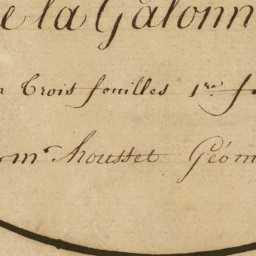 e la Galonn
Trois feuilles 1re f
mr housset Géom